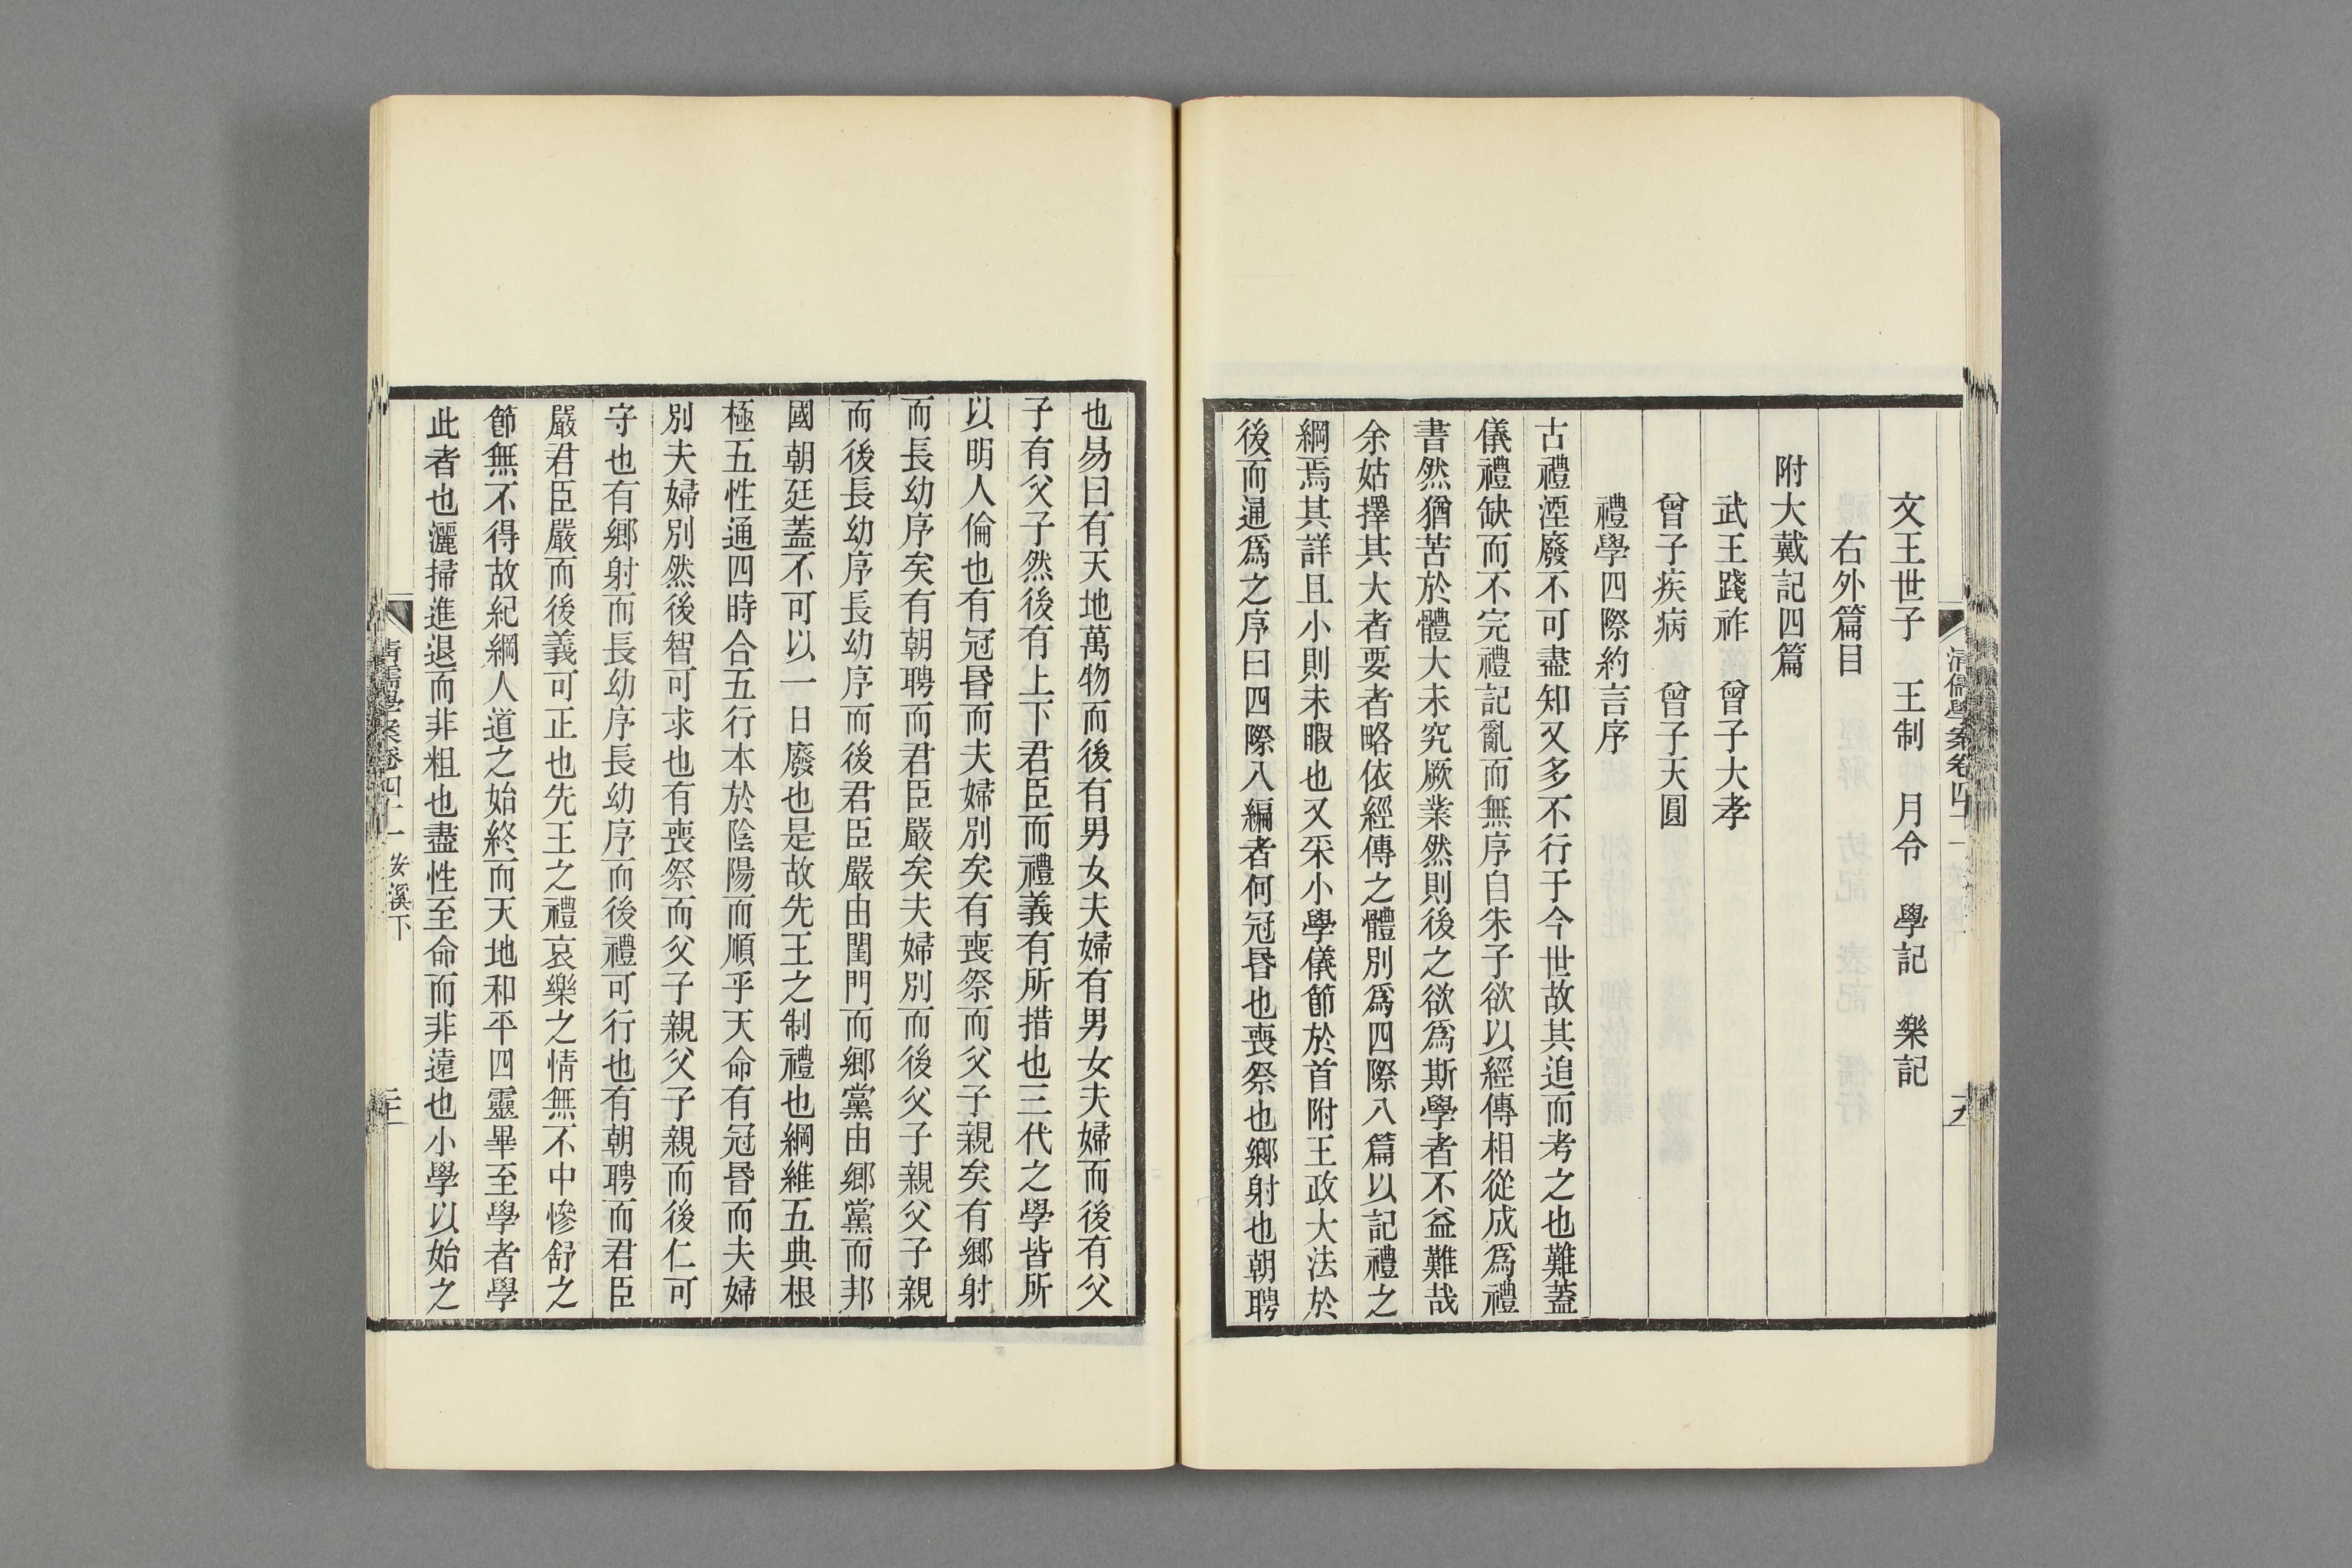 文王世子　王制　月令　學記　樂記
右外篇目
附大戴記四篇
武王踐祚　曾子大孝
曾子疾病　曾子天圓
禮學四際約言序
古禮湮廢不可盡知又多不行于今世故其追而考之也難蓋
儀禮缺而不完禮記亂而無序自朱子欲以經傳相從成爲禮
書然猶苦於體大未究厥業然則後之欲爲斯學者不益難哉
余姑擇其大者要者略依經傳之體別爲四際八篇以記禮之
綱焉其詳且小則未暇也又采小學儀節於首附王政大法於
後而通爲之序曰四際八編者何冠昏也喪祭也鄉射也朝聘
也易曰有天地萬物而後有男女夫婦有男女夫婦而後有父
子有父子然後有上下君臣而禮義有所措也三代之學皆所
以明人倫也有冠昏而夫婦別矣有喪祭而父子親矣有鄉射
而長幼序矣有朝聘而君臣嚴矣夫婦別而後父子親父子親
而後長幼序長幼序而後君臣嚴由閨門而鄉黨由鄉黨而邦
國朝廷蓋不可以一日廢也是故先王之制禮也綱維五典根
極五性通四時合五行本於陰陽而順乎天命有冠昏而夫婦
別夫婦別然後智可求也有喪祭而父子親父子親而後仁可
守也有鄉射而長幼序長幼序而後禮可行也有朝聘而君臣
嚴君臣嚴而後義可正也先王之禮哀樂之情無不中慘舒之
節無不得故紀綱人道之始終而天地和平四靈畢至學者學
此者也灑掃進退而非粗也盡性至命而非遠也小學以始之
清儒學案卷四十一　安溪下